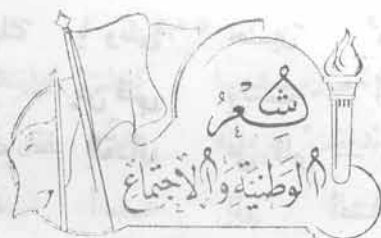 شِعْرُ
الوَطنيَّةِ وَالاجتِمَاعِ